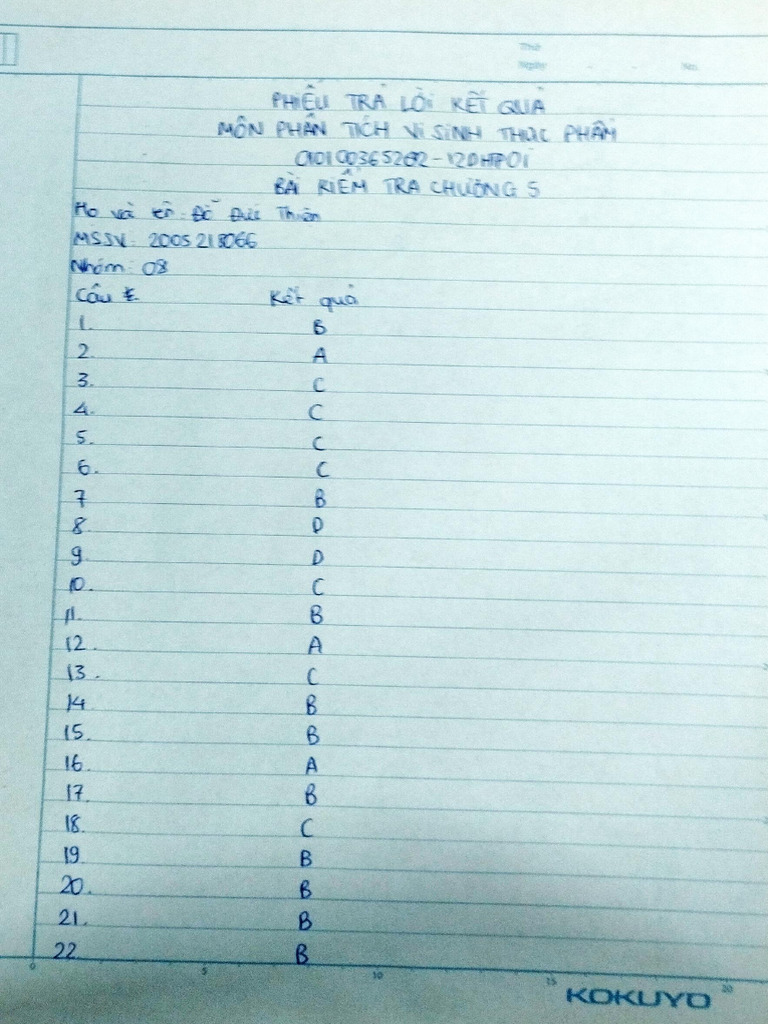 Thứ
Ngày - - No.
PHIẾU TRẢ LỜI KẾT QUẢ
MÔN PHÂN TÍCH VI SINH THỰC PHẨM
010100365202-12DHTP01
BÀI KIỂM TRA CHƯƠNG 5
Họ và tên: Đỗ Đức Thiên
MSSV: 2005218066
Nhóm: 08
Câu Kết quả
1. B
2 A
3. C
4. C
5. C
6. C
7 B
8 D
9 D
10. C
11. B
12. A
13. C
14 B
15. B
16. A
17. B
18. C
19 B
20. B
21. B
22 B
0 5 10 15 20
KOKUYO